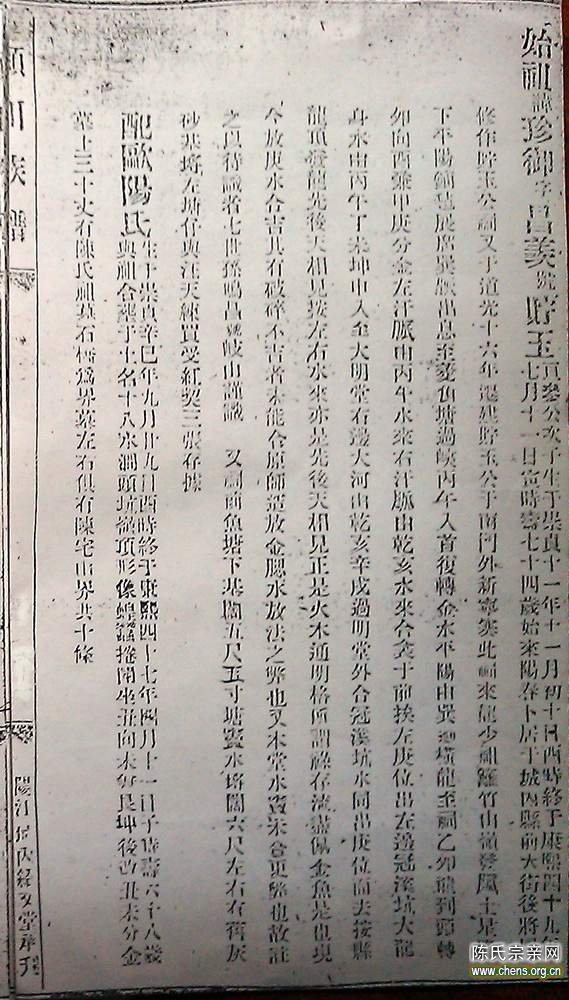 始祖諱珍御字昌義號貯玉貢參公次子生于崇貞十一年十一月初十日酉時終于康熙四十九年
七月十一日寅時壽七十四歲始來陽春卜居于城內縣前大街後將
修作貯玉公祠又于道光十六年遷建貯玉公于南門外新寧寨此祠來龍少祖羅竹山嶺發鳳土星
下平陽鋪氊展席巽脈出息至菱角塘過峽丙午入首復轉金水平陽由巽迎橫龍至祠乙卯龍到頭轉
如向酉兼甲庚分金左汗脈由丙午水來右汗脈由乾亥水來合衾于前挨左庚位出左邊冠溪坑大龍
身水由丙午丁未坤申入至大明堂右邊大河由乾亥辛戌過明堂外合冠溪坑水同出庚位而去按縣
龍頂聳龍先後天相見按左右水來亦是先後天相見正是火木通明格所謂祿存流盡佩金魚是也現
今放庚水合吉其有破碎不吉者未能合原師造放金腮水放法之弊也又木堂水竇未合更弊也故註
之以待識者七世孫鳴昌號岐山謹識　又祠面魚塘下基闊五尺五寸塘竇水塝闊六尺左右有舊灰
砂基塝左塘仔與汪天練買受紅契三張存據
配歐陽氏生于崇貞辛巳年九月廿九日酉時終于康熙四十七年四月十一日子時壽六十八歲
與祖合塟于土名十八水澗頭坑嶺頂形像蝗蟲捲閘坐丑向未每艮坤後改丑未分金
墓上三十丈有陳氏祖墓石碑為界墓左右俱有陳宅山界共十條
族譜
陽江
陳氏宗亲网
www.chens.org.cn